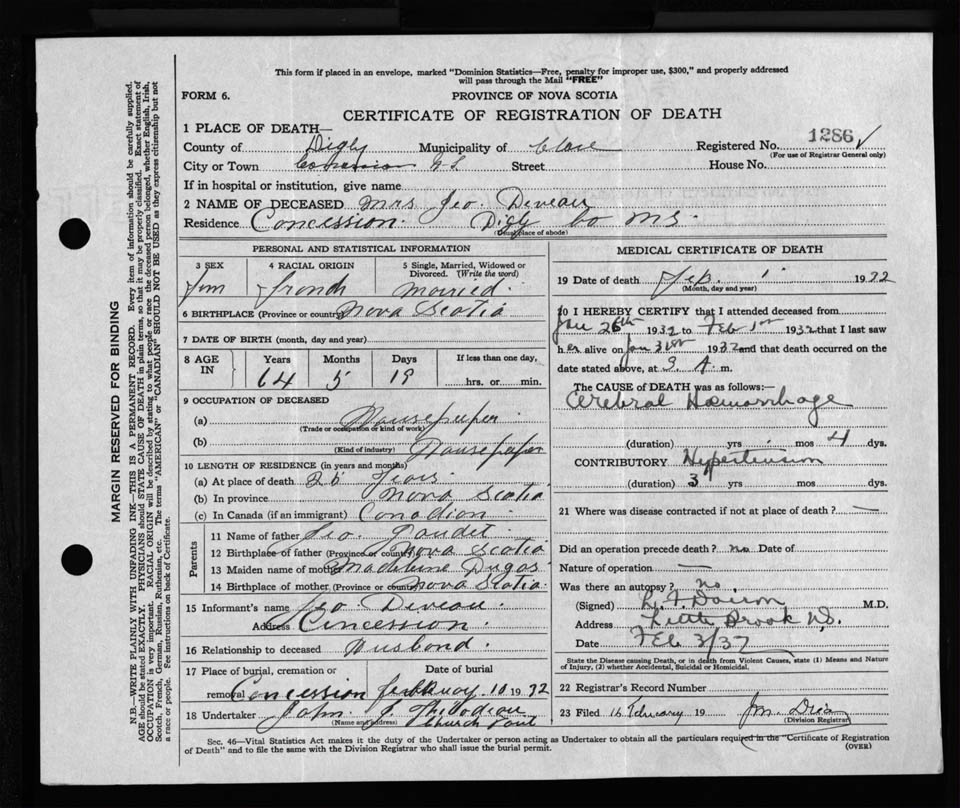 This form if placed in an envelope, marked "Dominion Statistics—Free, penalty for improper use, $300," and properly addressed
will pass through the Mail "FREE"
FORM 6.
PROVINCE OF NOVA SCOTIA
CERTIFICATE OF REGISTRATION OF DEATH
1 PLACE OF DEATH—
1286
County of Digby Municipality of Clare Registered No.
(For use of Registrar General only)
City or Town Concession N S Street House No.
If in hospital or institution, give name
2 NAME OF DECEASED Mrs Geo. Deveau
Residence Concession. Digby Co NS.
(Usual place of abode)
PERSONAL AND STATISTICAL INFORMATION
3 SEX 4 RACIAL ORIGIN 5 Single, Married, Widowed or
Divorced. (Write the word)
Fem French Married.
6 BIRTHPLACE (Province or country) Nova Scotia
7 DATE OF BIRTH (month, day and year)
8 AGE IN Years Months Days If less than one day,
64 5 19 hrs. or min.
9 OCCUPATION OF DECEASED
(a) Housekeeper
(Trade or occupation or kind of work)
(b) Housekeeper
(Kind of industry)
10 LENGTH OF RESIDENCE (in years and months)
(a) At place of death Years
(b) In province Nova Scotia
(c) In Canada (if an immigrant) Canadian.
Parents
11 Name of father Geo. Gaudet.
12 Birthplace of father (Province or country) Nova Scotia
13 Maiden name of mother Madeleine Dugas
14 Birthplace of mother (Province or country) Nova Scotia.
15 Informant's name Geo Deveau.
Address Concession.
16 Relationship to deceased Husband.
17 Place of burial, cremation or Date of burial
removal Concession 1932
18 Undertaker John J Thibodeau
(Name and address) Church Point
MEDICAL CERTIFICATE OF DEATH
19 Date of death Feb. 1 1932
(Month, day and year)
20 I HEREBY CERTIFY that I attended deceased from
Jan 26th 1932 to Feb 1st 1932 that I last saw
her alive on Jan 31st 1932 and that death occurred on the
date stated above, at 3 A. m.
The CAUSE of DEATH was as follows:—
Cerebral Haemorrhage
(duration) yrs mos 4 dys.
CONTRIBUTORY Hypertension
(duration) 3 yrs mos dys.
21 Where was disease contracted if not at place of death? —
Did an operation precede death? no Date of
Nature of operation —
Was there an autopsy? no
(Signed) M.D.
Address Little Brook N.S.
Date Feb 3/32
State the Disease causing Death, or in death from Violent Causes, state (1) Means and Nature
of Injury, (2) whether Accidental, Suicidal or Homicidal.
22 Registrar's Record Number
23 Filed 16 February 19
(Division Registrar)
Sec. 46—Vital Statistics Act makes it the duty of the Undertaker or person acting as Undertaker to obtain all the particulars required in the "Certificate of Registration
of Death" and to file the same with the Division Registrar who shall issue the burial permit.
(OVER)
MARGIN RESERVED FOR BINDING
N.B.—WRITE PLAINLY WITH UNFADING INK—THIS IS A PERMANENT RECORD. Every item of information should be carefully supplied.
AGE should be stated EXACTLY. PHYSICIANS should STATE CAUSE OF DEATH in plain terms, so that it may be properly classified. Exact statement of
OCCUPATION is very important. RACIAL ORIGIN will be described by stating to what people or race the deceased person belonged, whether English, Irish,
Scotch, French, German, Russian, Ruthenian, etc. The terms "AMERICAN" or "CANADIAN" SHOULD NOT BE USED as they express citizenship but not
a race or people. See instructions on back of Certificate.